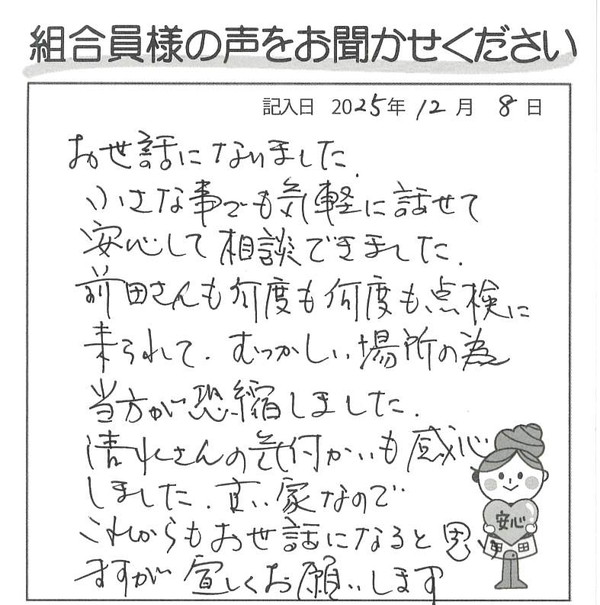 組合員様の声をお聞かせください
記入日 2025年 12月 8日
お世話になりました.
小さな事でも気軽に話せて
安心して相談できました.
前田さんも何度も何度も点検に
来られて. むつかしい場所の為
当方が恐縮しました.
清水さんの気付かいも感心
しました. 古い家なので
これからもお世話になると思い
ますが宜しくお願いします
安心